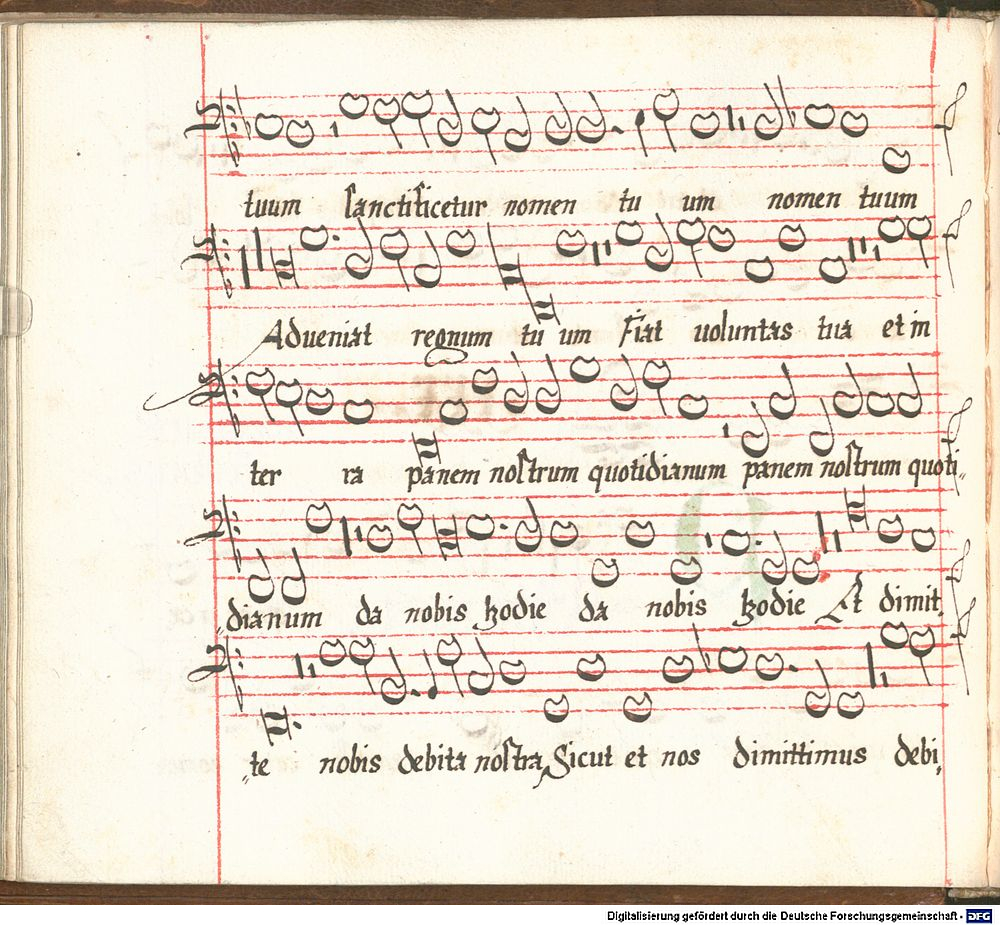 tuum sanctificetur nomen tu um nomen tuum
Adveniat regnum tu um Fiat uoluntas tua et in
ter ra panem nostrum quotidianum panem nostrum quoti„
„dianum da nobis hodie da nobis hodie Et dimit„
„te nobis debita nostra Sicut et nos dimittimus debi„
Digitalisierung gefördert durch die Deutsche Forschungsgemeinschaft - DFG